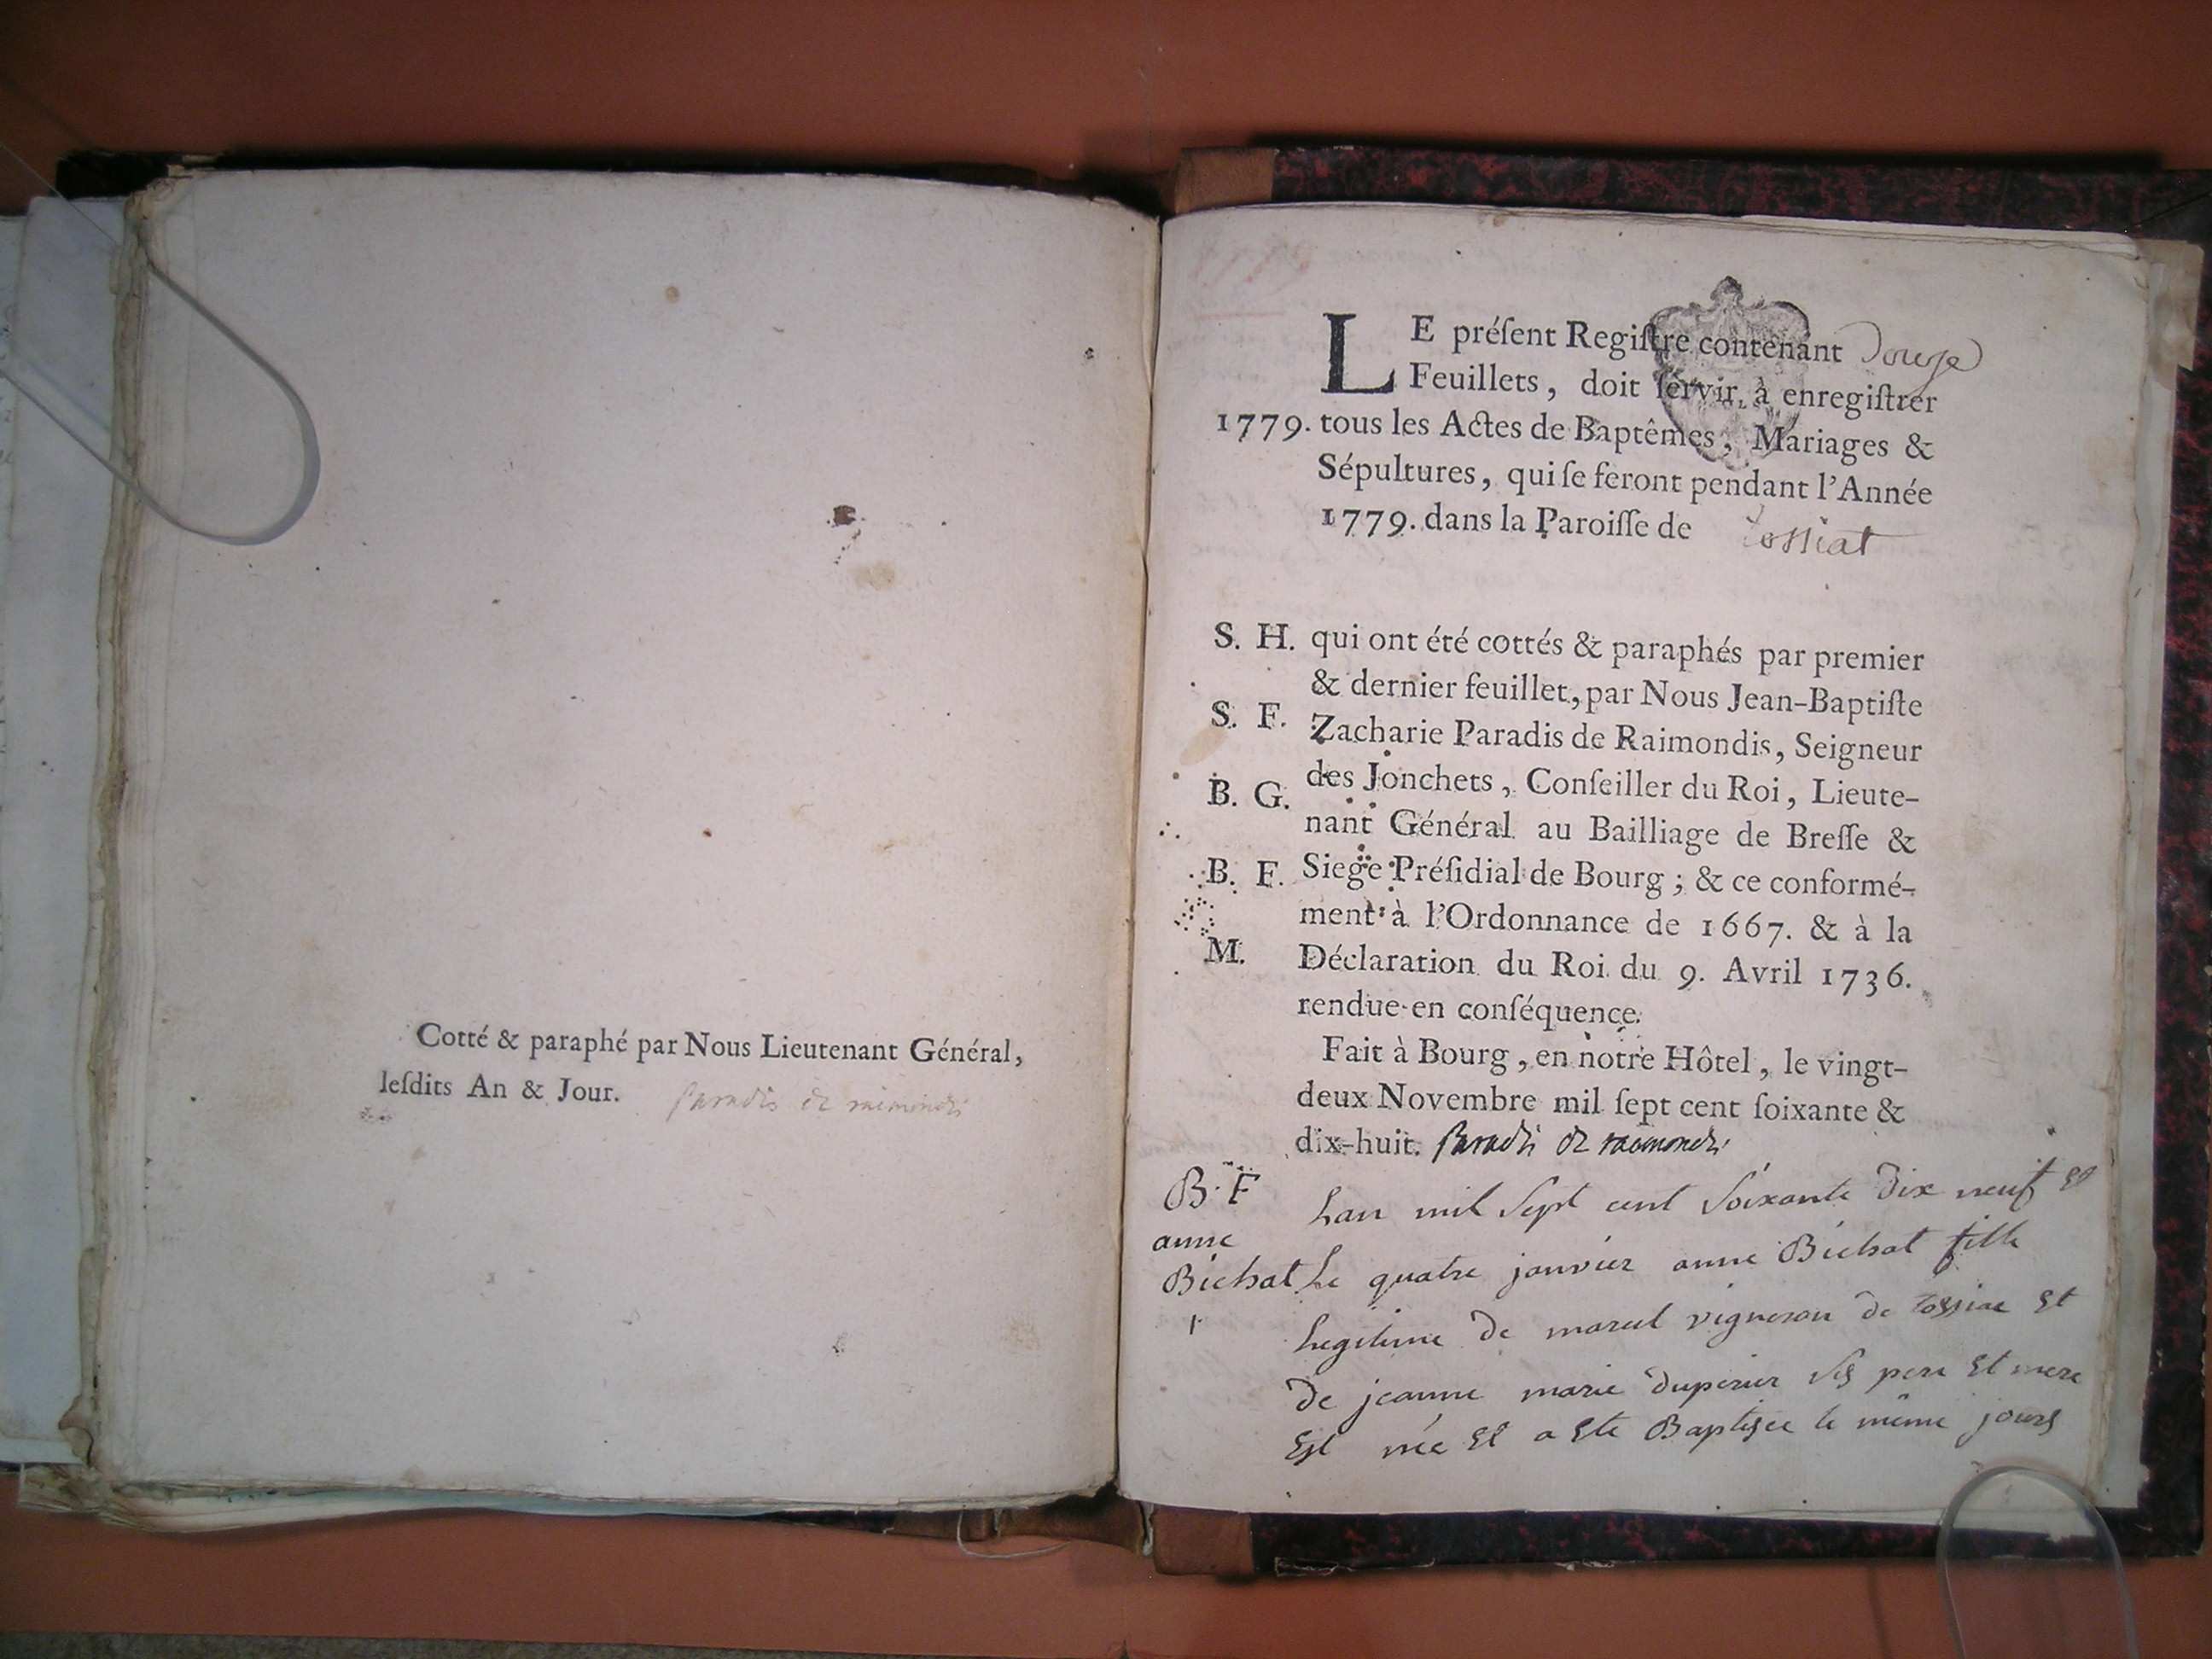 Cotté & paraphé par Nous Lieutenant Général,
leſdits An & Jour. Paradis de raimondis
LE préſent Regiſtre contenant douze
Feuillets, doit ſervir à enregiſtrer
1779. tous les Actes de Baptêmes, Mariages &
Sépultures, qui ſe feront pendant l'Année
1779. dans la Paroiſſe de tossiat
S. H. qui ont été cottés & paraphés par premier
& dernier feuillet, par Nous Jean-Baptiſte
S. F. Zacharie Paradis de Raimondis, Seigneur
des Jonchets, Conſeiller du Roi, Lieute-
B. G. nant Général au Bailliage de Breſſe &
B. F. Siege Préſidial de Bourg ; & ce conformé-
ment à l'Ordonnance de 1667. & à la
M. Déclaration du Roi du 9. Avril 1736.
rendue en conſéquence.
Fait à Bourg, en notre Hôtel, le vingt-
deux Novembre mil ſept cent ſoixante &
dix-huit. Paradis de raimondis
B. F
anne
Bichat
1
Lan mil Sept cent Soixante dix neuf et
Le quatre janvier anne Bichat fille
Legitime de marcel vigneron de tossiat et
De jeanne marie duperier ses pere et mere
Est née et a ete Baptisee le même jours